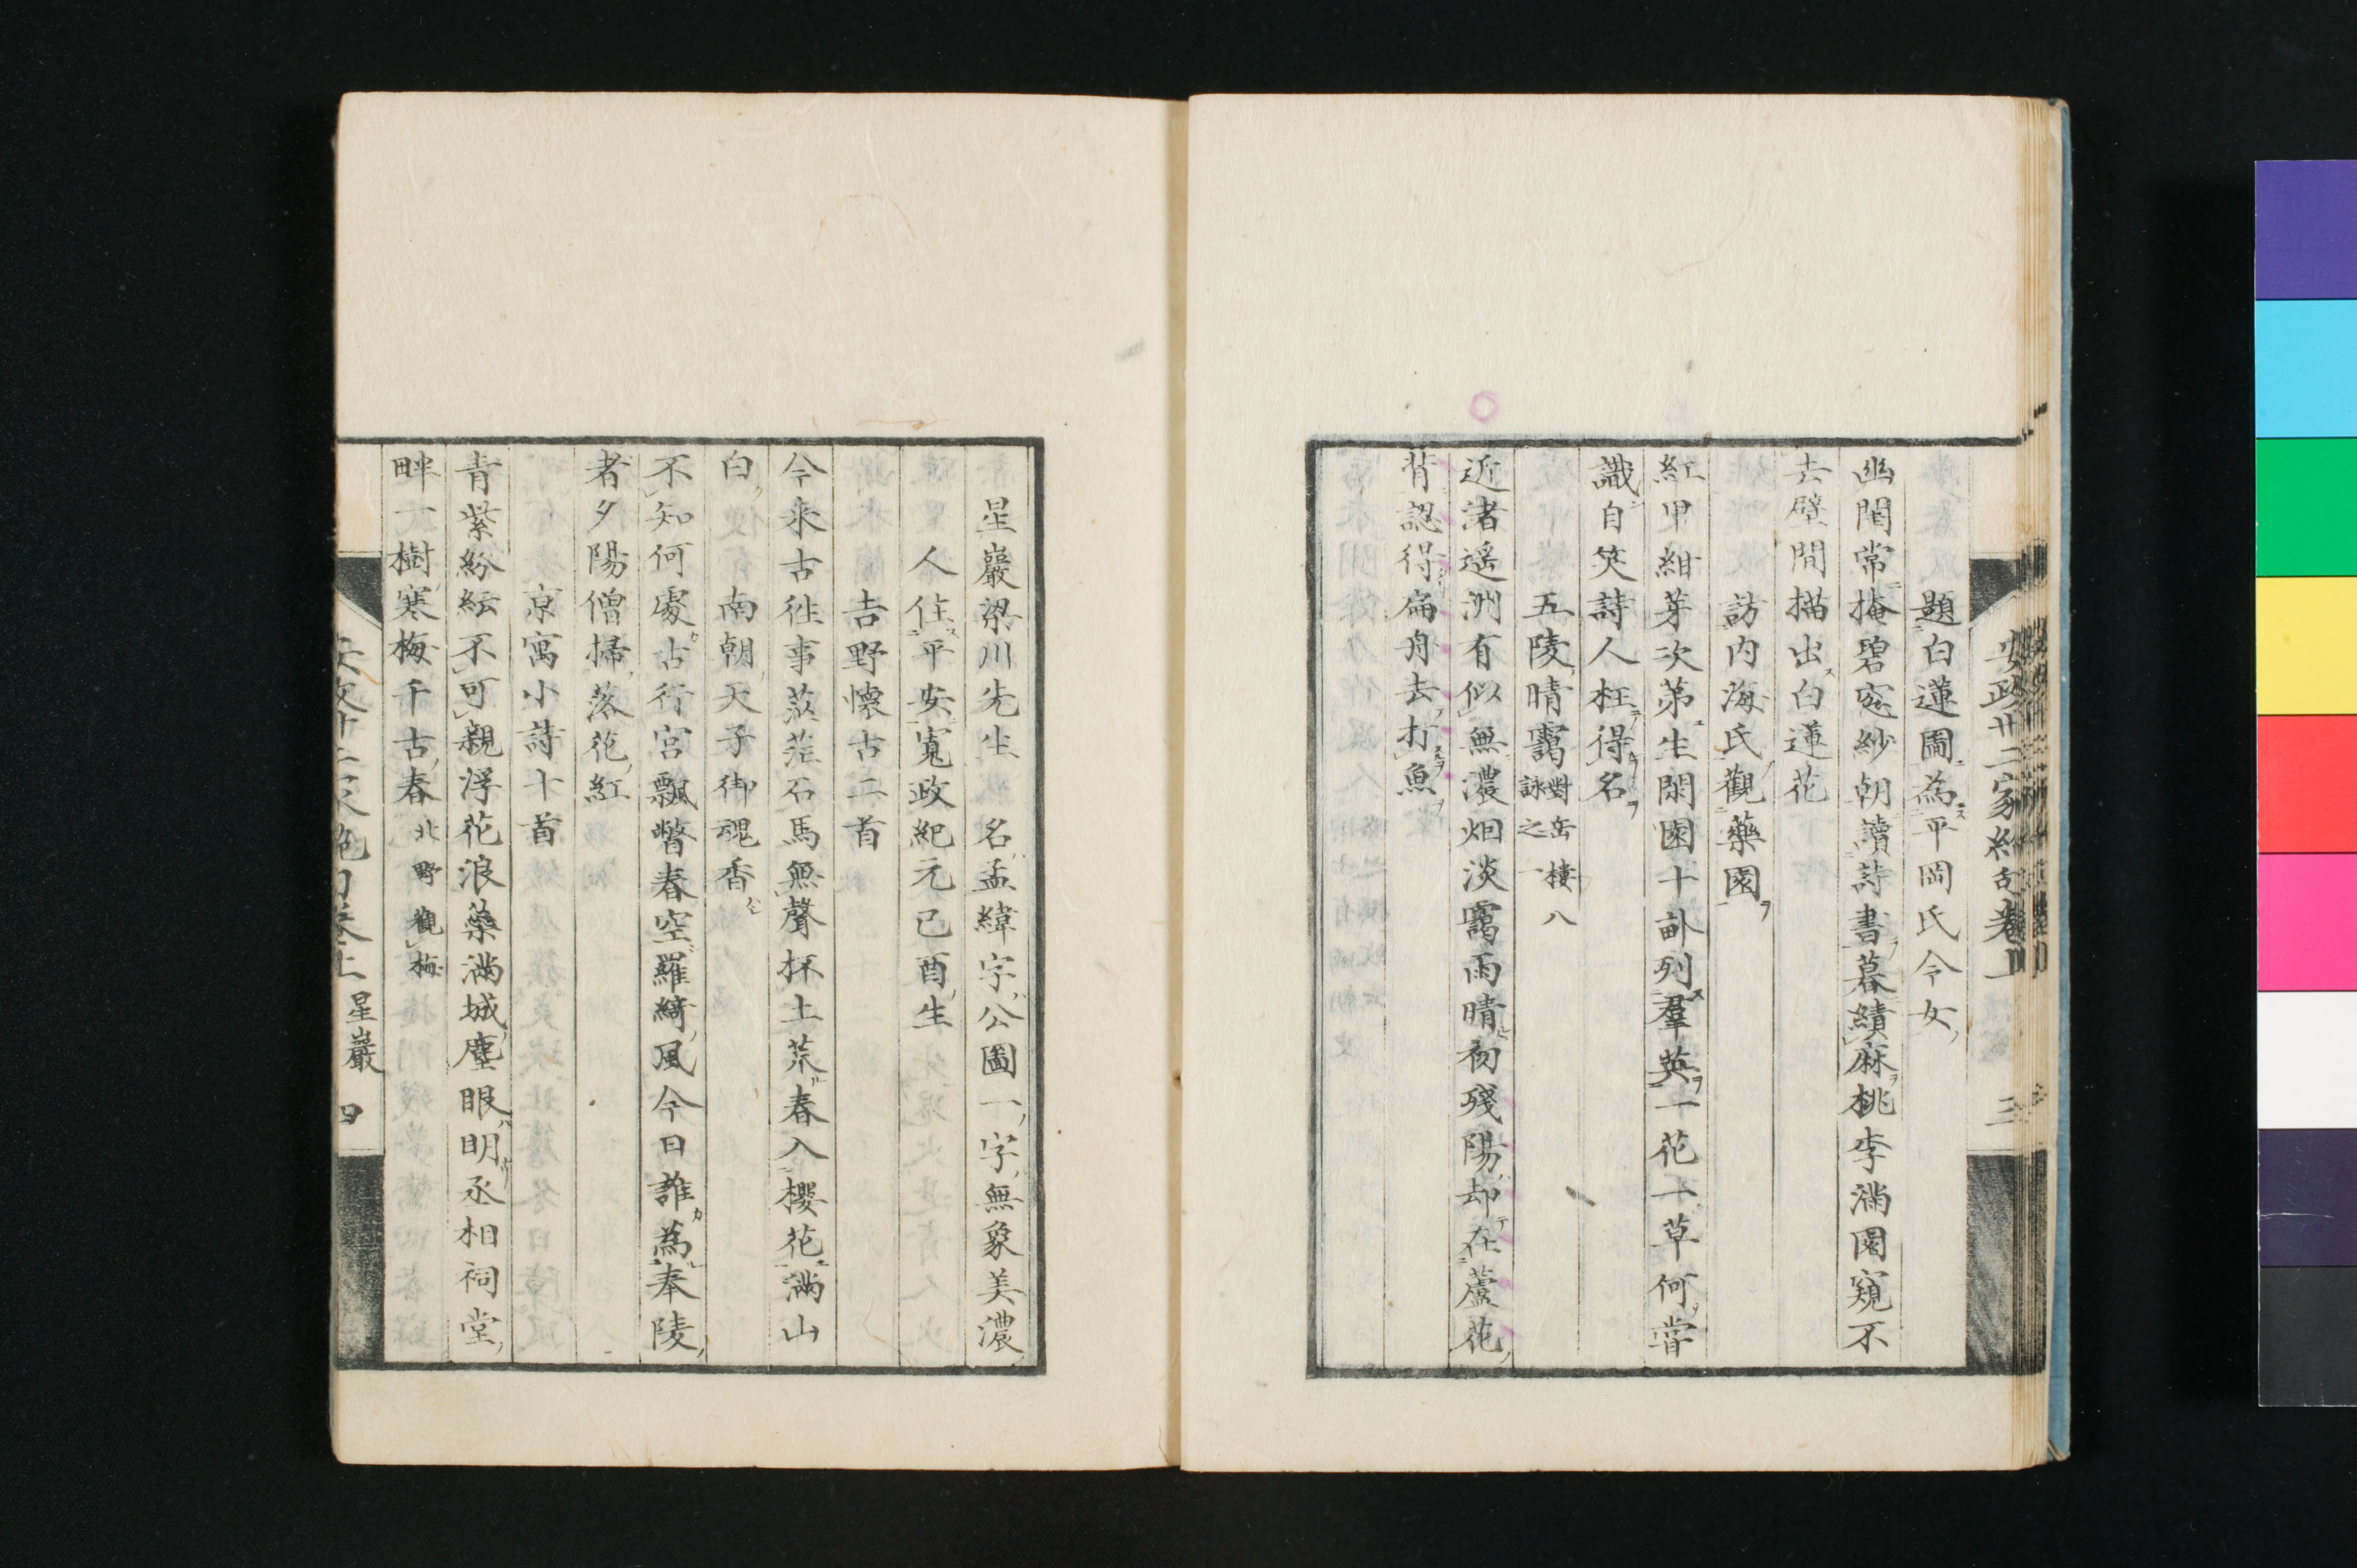 題白蓮圖為平岡氏令女
幽閨常掩碧窓紗朝讀詩書暮績麻桃李滿園窺不
去壁間描出白蓮花
訪内海氏觀藥園
紅甲紺芽次第生閑園十畝列羣英一花一草何嘗
識自笑詩人枉得名
五陵晴靄對岳棲八詠之一
近渚遥洲有似無濃烟淡靄雨晴初殘陽却在蘆花
背認得扁舟去打魚
星巖梁川先生 名孟緯字公圖一字無象美濃
人住平安寬政紀元己酉生
吉野懷古二首
今来古往事茫茫石馬無聲抔土荒春入櫻花滿山
白南朝天子御魂香
不知何處古行宮飄瞥春空羅綺風今日誰為奉陵
者夕陽僧掃落花紅
京寓小詩十首
青紫紛紜不可親浮花浪蘂滿城塵眼明丞相祠堂
畔一樹寒梅千古春北野觀梅
星巖 四